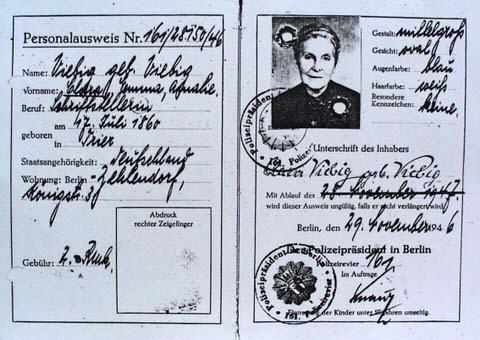 Personalausweis Nr. 161/28150/46
Name: Viebig geb. Viebig
Vorname: Clara, Emma, Amalie.
Beruf: Schriftstellerin
am 17. Juli 1860
geboren
in Trier
Staatsangehörigkeit: Deutschland
Wohnung: Berlin - Zehlendorf,
Königstr. 3
Abdruck
rechter Zeigefinger
Gebühr: 2.- Rmk.
Gestalt: mittelgroß
Gesicht: oval
Augenfarbe: blau
Haarfarbe: weiß
Besondere
Kennzeichen: keine.
Unterschrift des Inhabers
Clara Viebig geb. Viebig
Mit Ablauf des 28. November 1947
wird dieser Ausweis ungültig, falls er nicht verlängert wird
Berlin, den 29. November 1946
Der Polizeipräsident in Berlin
Polizeirevier 161
im Auftrage
Eintragung der Kinder unter Jahren umseitig.
Polizeipräsident
161. Polizei
Polizeipräsident in Berlin
161. Polizeirevier